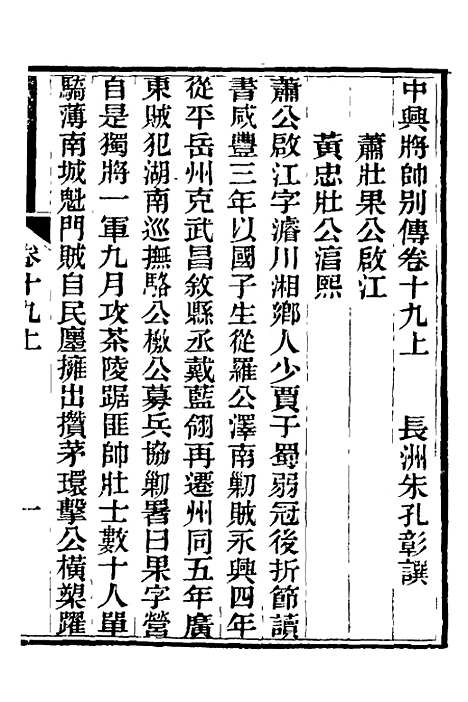 中興將帥別傳卷十九上　　長洲朱孔彰譔
蕭壯果公啟江
黃忠壯公淯熙
蕭公啟江字濬川湘鄉人少賈于蜀弱冠後折節讀
書咸豐三年以國子生從羅公澤南勦賊永興四年
從平岳州克武昌敘縣丞戴藍翎再遷州同五年廣
東賊犯湖南巡撫駱公檄公募兵協勦署曰果字營
自是獨將一軍九月攻茶陵踞匪帥壯士數十人單
騎薄南城魁門賊自民廛擁出攢茅環擊公橫槊躍
卷十九上
一